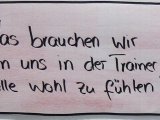 as brauchen wir
m uns in der Trainer
lle wohl zu fühlen